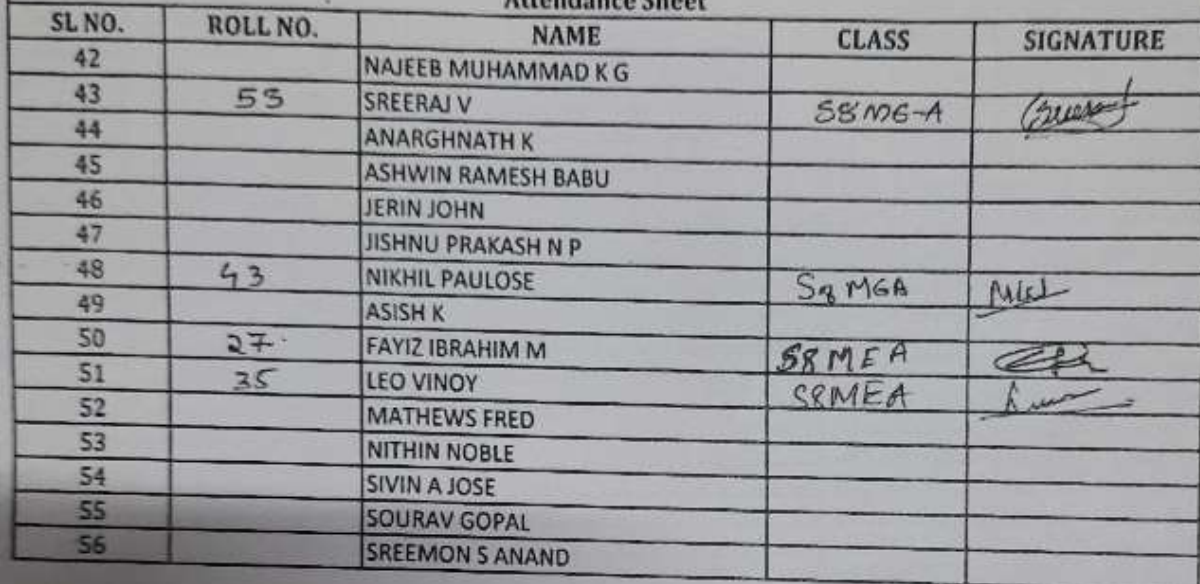 Attendance Sheet
SL NO. ROLL NO. NAME CLASS SIGNATURE
42 NAJEEB MUHAMMAD K G
43 53 SREERAJ V S8 ME-A
44 ANARGHNATH K
45 ASHWIN RAMESH BABU
46 JERIN JOHN
47 JISHNU PRAKASH N P
48 43 NIKHIL PAULOSE S8 MEA
49 ASISH K
50 27 FAYIZ IBRAHIM M S8 MEA
51 35 LEO VINOY S8MEA
52 MATHEWS FRED
53 NITHIN NOBLE
54 SIVIN A JOSE
55 SOURAV GOPAL
56 SREEMON S ANAND